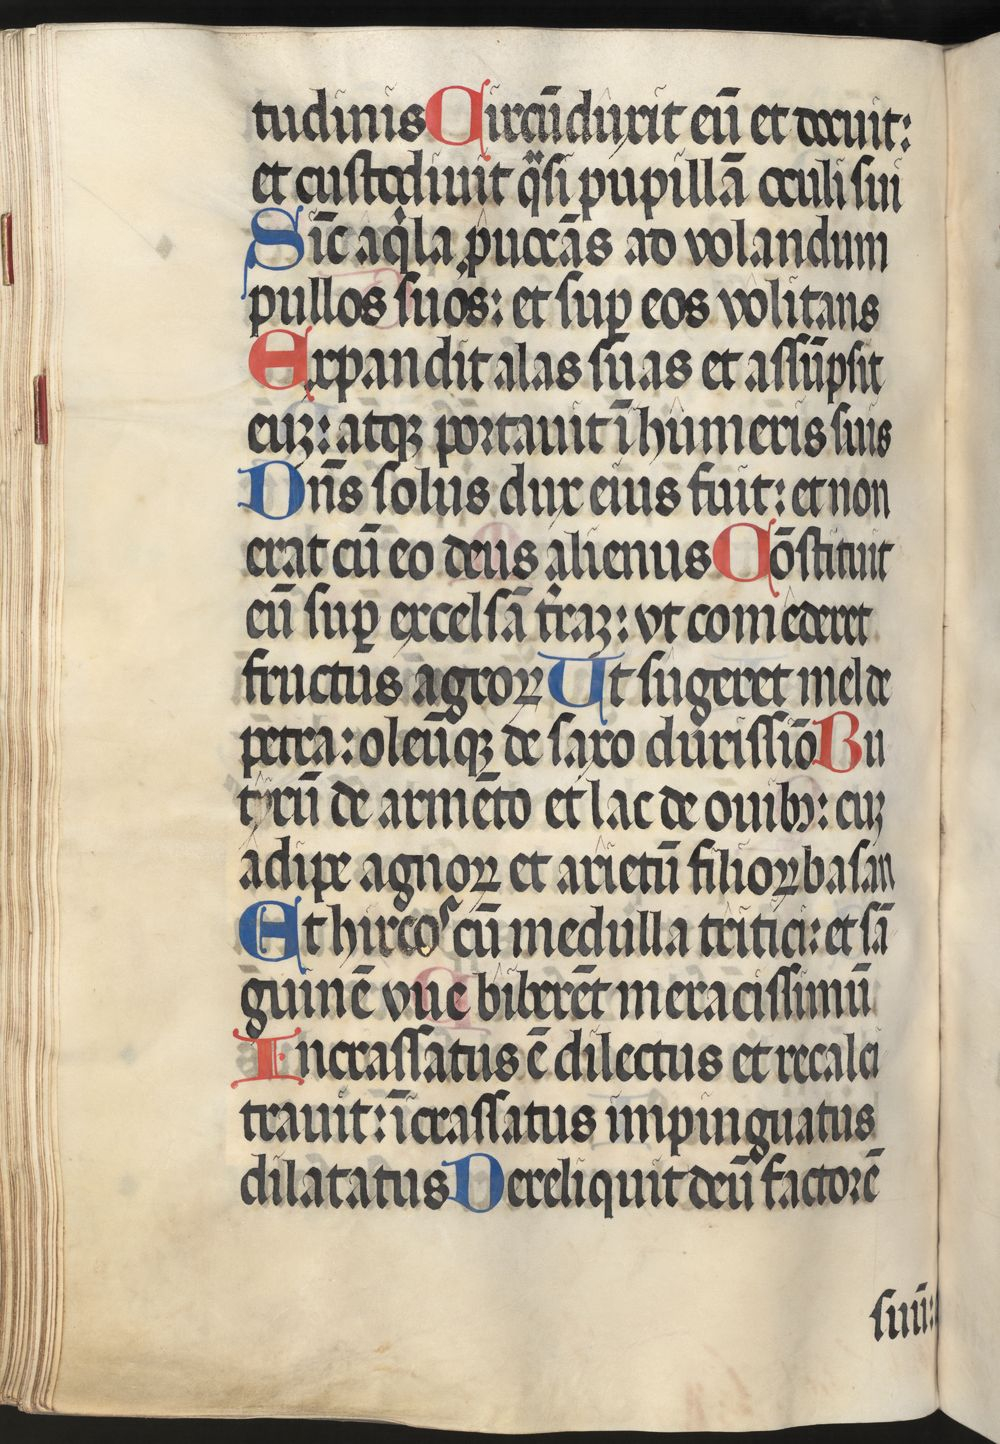 tudinis Circūduxit eū et docuit:
et custodiuit q̈si pupillā oculi sui
Sic̄ aqͥla ꝓuocās ad volandum
pullos suos: et suꝑ eos volitans
Expandit alas suas et assūpsit
euʒ: atqʒ portauit ī humeris suis
Dn̄s solus dux eius fuit: et non
erat cū eo deus alienus Cōstituit
eū suꝑ excelsā t̄raʒ: vt comederet
fructus agroꝝ Ut sugeret mel de
petra: oleūqʒ de saxo durissīo Bu
tyrū de armēto et lac de ouibꝫ: cuʒ
adipe agnoꝝ et arietū filioꝝ basan
Et hircos cū medulla tritici: et sā
guinē vue biberēt meracissimū
Incrassatus ē dilectus et recalci
trauit: īcrassatus impinguatus
dilatatus Dereliquit deū factorē
suū: